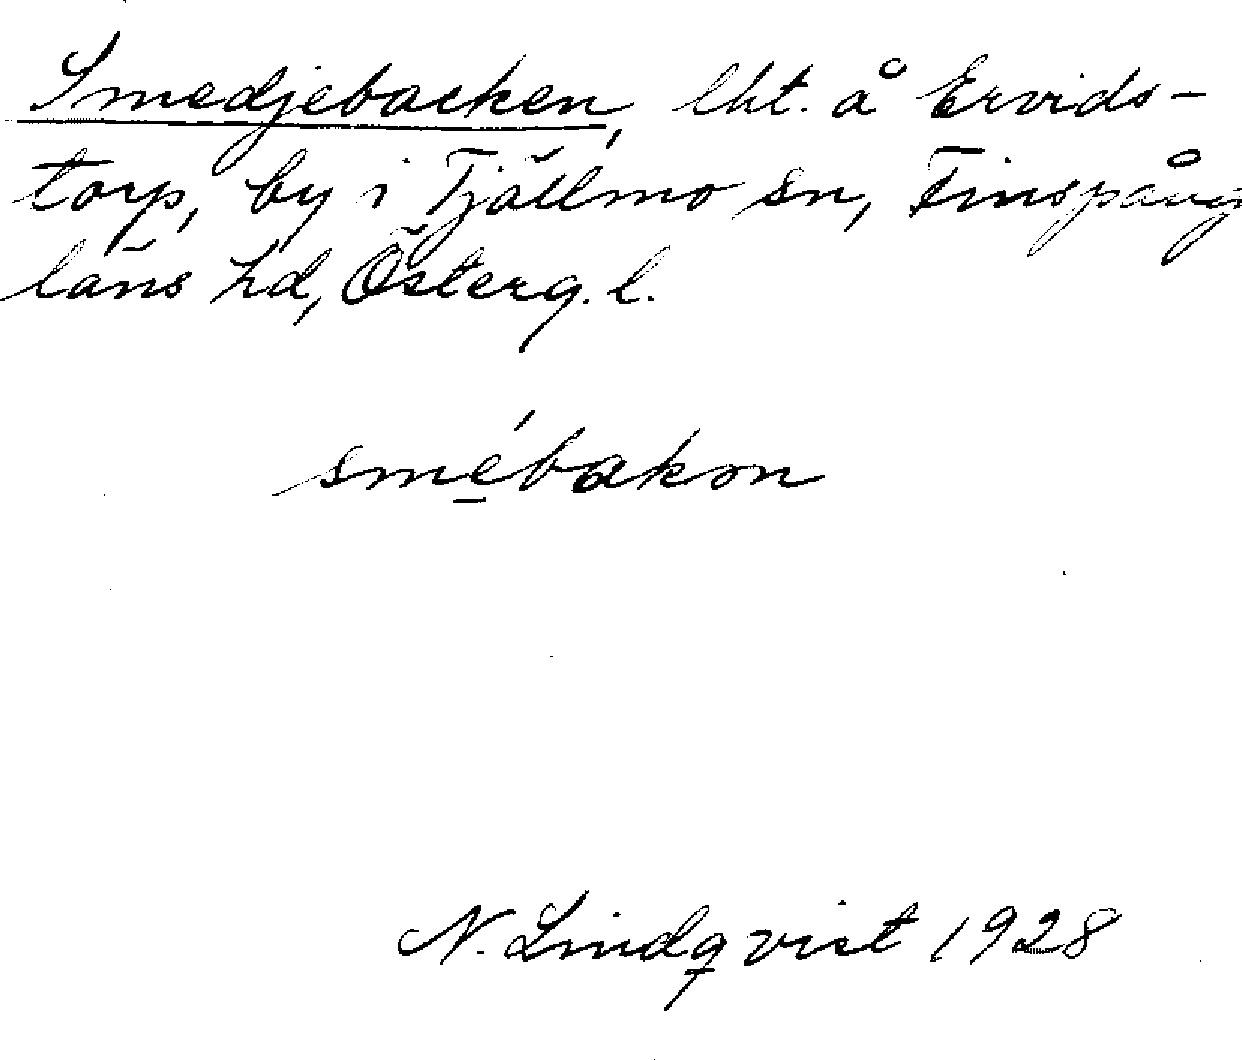 Smedjebacken, lht. å Ervids-
torp, by i Tjällmo sn, Finspång
läns hd, Österg. l.
smébakən
N. Lindqvist 1928